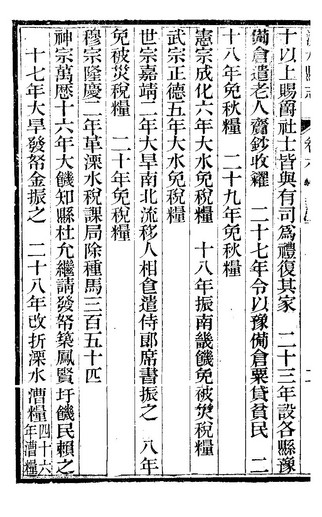 十以上賜爵社士皆與有司爲禮復其家　二十三年設各縣豫
備倉遣老人齎鈔收糴　二十七年令以豫備倉粟貸貧民　二
十八年免秋糧　二十九年免秋糧
憲宗成化六年大水免税糧　十八年振南畿饑免被災税糧
武宗正德五年大水免税糧
世宗嘉靖二年大旱南北流移人相食遣侍郎席書振之　八年
免被災税糧　二十年免税糧
穆宗隆慶二年革溧水税課局除種馬三百五十匹
神宗萬歷十六年大饑知縣杜允繼請發帑築鳳賢圩饑民賴之
十七年大旱發帑金振之　二十八年改折溧水漕糧四十六
年漕糧